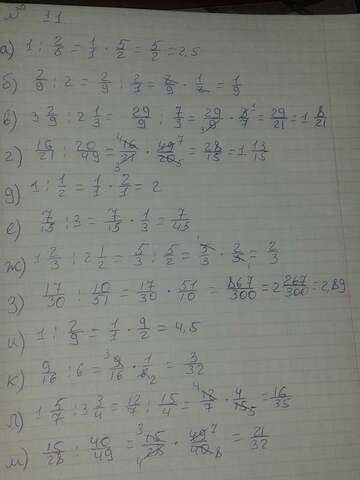 № 11
а) 1 : 2/5 = 1/1 · 5/2 = 5/2 = 2,5
б) 2/9 : 2 = 2/9 : 2/1 = 2/9 · 1/2 = 1/9
в) 3 2/9 : 2 1/3 = 29/9 : 7/3 = 29/9 · 3/7 = 29/21 = 1 8/21
г) 16/21 : 20/49 = 16/21 · 49/20 = 28/15 = 1 13/15
д) 1 : 1/2 = 1/1 · 2/1 = 2
е) 7/15 : 3 = 7/15 · 1/3 = 7/45
ж) 1 2/3 : 2 1/2 = 5/3 : 5/2 = 5/3 · 2/5 = 2/3
з) 17/30 : 10/51 = 17/30 · 51/10 = 867/300 = 2 267/300 = 2,89
и) 1 : 2/9 = 1/1 · 9/2 = 4,5
к) 9/16 : 6 = 9/16 · 1/6 = 3/32
л) 1 5/7 : 3 3/4 = 12/7 : 15/4 = 12/7 · 4/15 = 16/35
м) 15/28 : 40/49 = 15/28 · 49/40 = 21/32